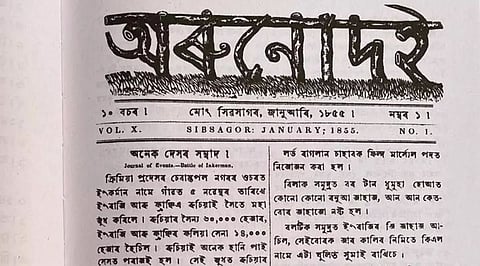 অৰুনোদই
১০ বচৰ। মোং সিৱসাগৰ, জানুআৰি, ১৮৫৫। নম্বৰ ১।
VOL. X. SIBSAGOR: JANUARY; 1855. NO. 1.
অনেক দেসৰ সম্বাদ।
Journal of Events.—Battle of Inkerman.
ক্ৰিমিয়া প্ৰদেসৰ চেবাস্তপল নগৰৰ ওচৰত
ইংকৰ্মান নামে গাঁৱত ৫ নৱেম্বৰ তাৰিখে
ইংৰাজি আৰু ফ্ৰান্সিচ ৰুচিয়াই সৈতে মহা
জুধ কৰিলে। ৰুচিয়াৰ সৈন্য ৬০,০০০ হেজাৰ,
ইংৰাজি আৰু ফ্ৰান্সিচ ৰুলিয়া সেনা ১৪,০০০
হেজাৰ হৈছিল। ৰুচিয়াই অনেক হানি পাই
সেসত পৰাজই হল। সেই জুধত ৰুচিয়াৰ
লৰ্ড ৰাগলান চাহাবক ফিল্ড মাৰ্সেল পদত
নিজোজন কৰা হল।
বিলাক সমুদ্ৰত বৰ টান ধুমুহা হোৱাত
কোনো কোনো ৰনুৱা জাহাজ, আন আন কেত-
বোৰ জাহাজো নষ্ট হল।
বলটিক সমুদ্ৰত ইংৰাজিৰ জি জাহাজ আ-
চিল, সেইবোৰক জাৰ কালিৰ নিমিতে কিএল
নামে এটা ঘুলিত সুমাই ৰাখিচে।